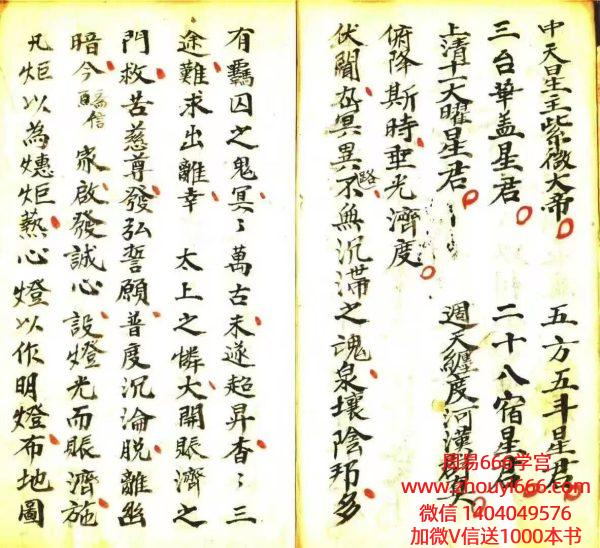 中天星主紫微大帝 五方五斗星君
三台華盖星君 二十八宿星君
上清十一大曜星君 週天纏度河漢
俯降斯時垂光濟度
伏聞冥異路不無沉滯之魂泉壤陰邦多
有羈囚之鬼冥〻萬古未遂超昇杳〻三
途難求出離幸 太上之憐大開賑濟之
門救苦慈尊發弘誓願普度沉淪脱離幽
暗今 信 家啟發誠心設燈光而賑濟施
凡炬以為炬爇心燈以作明燈布地圖
周易666学宫
www.zhouyi666.com
微信 1404049576
加微V信送1000本书